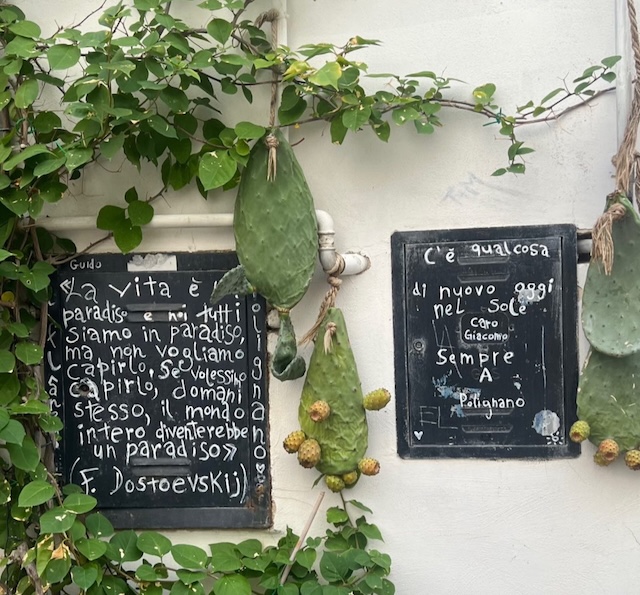 Guido
«La vita è
paradiso e noi tutti
siamo in paradiso,
ma non vogliamo
capirlo, se volessimo
capirlo, domani
stesso, il mondo
intero diventerebbe
un paradiso»
(F. Dostoevskij)
olignano
C'è qualcosa
di nuovo oggi
nel sole
Caro
Giacomo
Sempre
A
Polignano